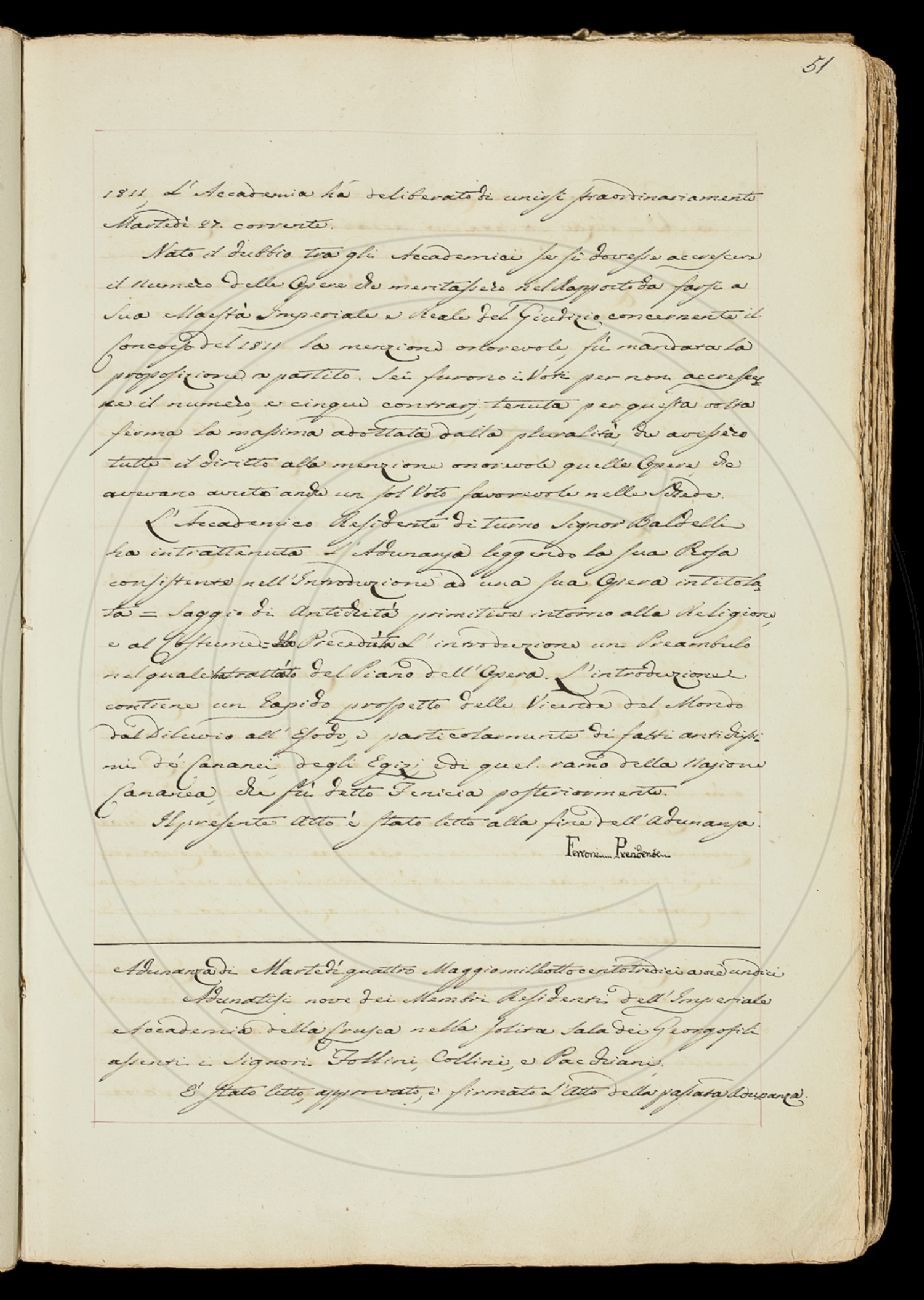 51
1811, L'Accademia ha deliberato di unirsi straordinariamente
Martedì 27. corrente.
Nato il dubbio tra gli Accademici se si dovesse accrescere
il numero delle Opere che meritassero nel Rapporto da farsi a
Sua Maestà Imperiale e Reale del Giudizio concernente il
Concorso del 1811 la menzione onorevole, fù mandata la
proposizione a partito. Sei furono i Voti per non accresce-
re il numero, e cinque contrarj, tenuta per questa volta
ferma la massima adottata dalla pluralità, che avessero
tutte il diritto alla menzione onorevole quelle Opere, che
avevano avuto anche un sol Voto favorevole nelle Schede.
L'Accademico Residente di turno Signor Baldelli
ha intrattenuta l'Adunanza leggendo la sua Prosa
consistente nell'Introduzione ad una sua Opera intitola-
ta = Saggio di Antichità primitive intorno alla Religione,
e al Costume = Preceduta l'introduzione un Preambulo
nel quale ha trattato del Piano dell'Opera. L'introduzione
contiene un rapido prospetto delle Vicende del Mondo
dal Diluvio all'Esodo, e particolarmente di fatti antichissi-
mi de' Cananei, degli Egizj, e di quel ramo della Nazione
Cananea, che fù detto Fenicia posteriormente.
Il presente Atto è stato letto alla fine dell'Adunanza.
Ferroni Presidente
Adunanza di Martedì quattro Maggio mille ottocento tredici a ore undici
Adunatisi nove dei Membri Residenti dell'Imperiale
Accademia della Crusca nella solita Sala dei Georgofili
assenti i Signori Follini, Collini, e Pacchiani.
È stato letto, approvato, e firmato l'Atto della passata Adunanza.